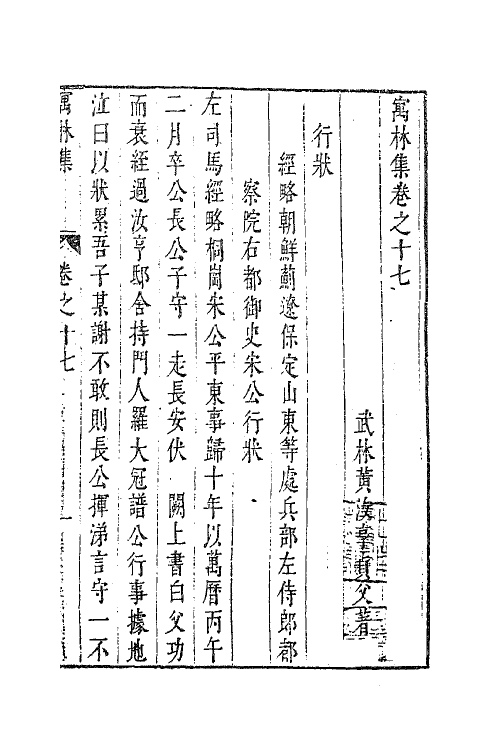 寓林集卷之十七
武林黃汝亨貞父著
行狀
經略朝鮮薊遼保定山東等處兵部左侍郎都
察院右都御史宋公行狀
左司馬經略桐崗宋公平東事歸十年以萬曆丙午
二月卒公長公子守一走長安伏 闕上書白父功
而衰絰過汝亨邸舍持門人羅大冠譜公行事據地
泣曰以狀累吾子某謝不敢則長公揮涕言守一不
寓林集 卷之十七 一